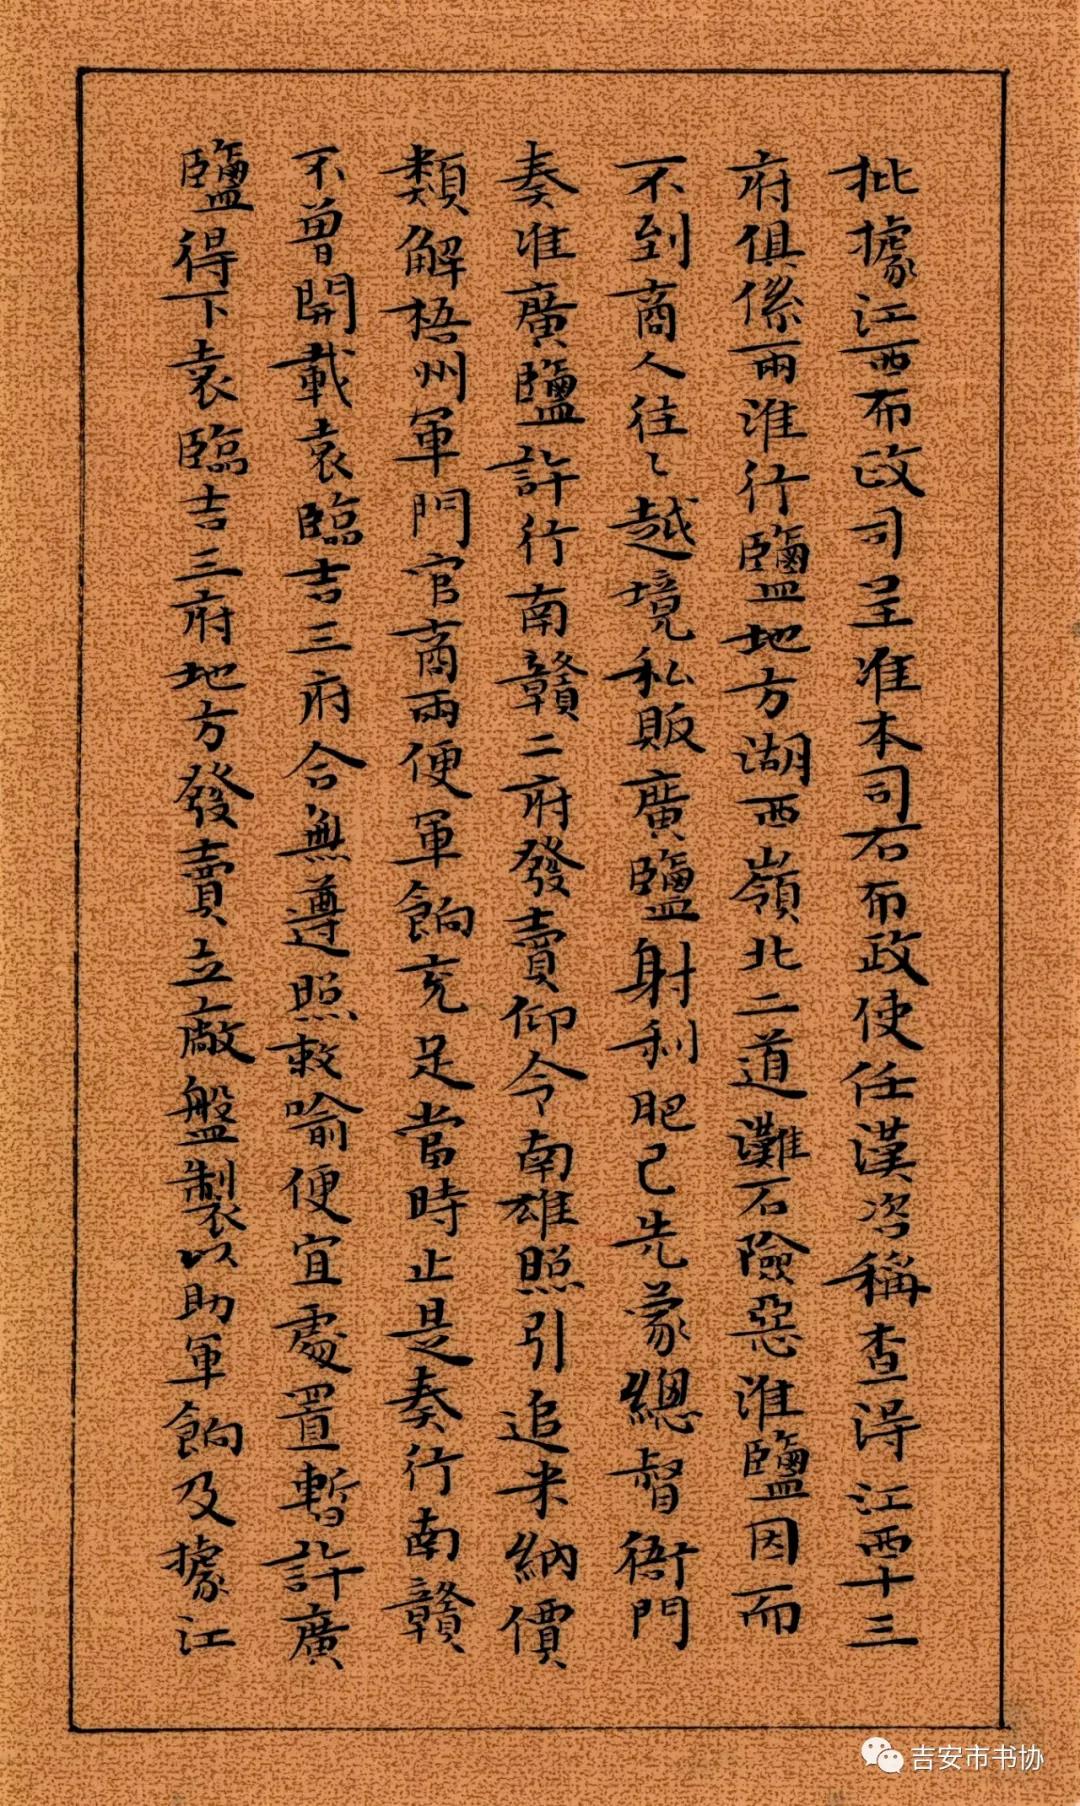 批據江西布政司呈准本司右布政使任漢咨稱查得江西十三
府俱係兩淮行鹽地方湖西嶺北二道灘石險惡淮鹽因而
不到商人往〻越境私販廣鹽射利肥己先蒙總督衙門
奏准廣鹽許行南贛二府發賣仰令南雄照引追米納價
類解梧州軍門官商兩便軍餉充足當時止是奏行南贛
不曾開載袁臨吉三府合無遵照敕喻便宜處置暫許廣
鹽得下袁臨吉三府地方發賣立廠盤製以助軍餉及據江
吉安市书协